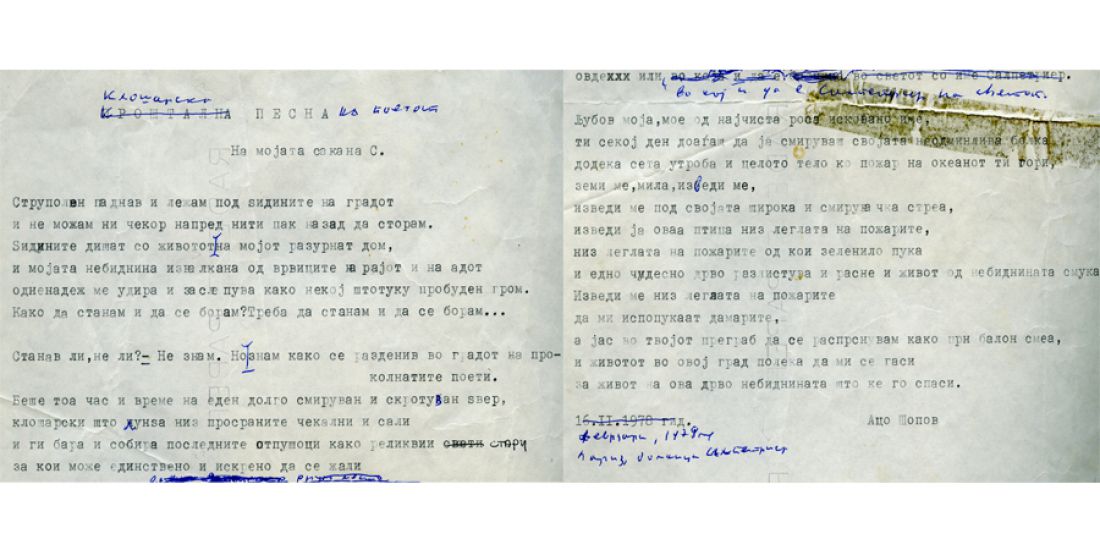 Клошарска
КРОШТАЛНА ПЕСНА на поетот
На мојата сакана С.
Струполен паднав и лежам под ѕидините на градот
и не можам ни чекор напред нити пак назад да сторам.
Ѕидините дишат со животот на мојот разурнат дом,
и мојата небиднина извалкана од врвиците на рајот и на адот
одненадеж ме удира и заслепува како некој штотуку пробуден гром.
Како да станам и да се борам?Треба да станам и да се борам...
Станав ли,не ли?- Не знам. Но знам како се разденив во градот на про-
колнатите поети.
Беше тоа час и време на еден долго смируван и скротуван ѕвер,
клошарски што лунѕа низ просраните чекални и сали
и ги бара и собира последните отпушоци како реликвии свети стару
за кои може единствено и искрено да се жали
овдеххх или во светот со име Салпетриер.
во кој и да е Салпетриер на светот.
Љубов моја,мое од најчиста роса исковано име,
ти секој ден доаѓаш да ја смируваш својата неодминлива болка
додека сета утроба и целото тело ко пожар на океанот ти гори,
земи ме,мила,изведи ме,
изведи ме под својата широка и смирувачка стреа,
изведи ја оваа птица низ леглата на пожарите,
низ леглата на пожарите од кои зеленило пука
и едно чудесно дрво разлистува и расне и живот од небиднината смука
Изведи ме низ леглата на пожарите
да ми испопукаат дамарите,
а јас во твојот преграб да се распрснувам како црн балон смеа,
и животот во овој град полека да ми се гаси
за живот на ова дрво небиднината што ке го спаси.
16.II.1978 год.
Ацо Шопов
февруари, 1979
Париз, болница Салпетриер